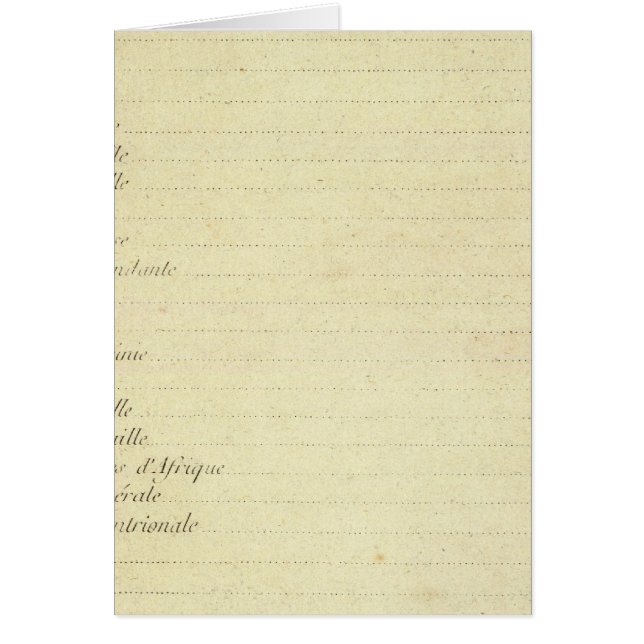 le
le
se
ndante
inie
lle
uille
s d'Afrique
érale
ntrionale